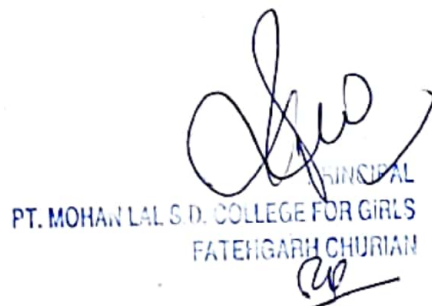 PRINCIPAL
PT. MOHAN LAL S.D. COLLEGE FOR GIRLS
FATEHGARH CHURIAN